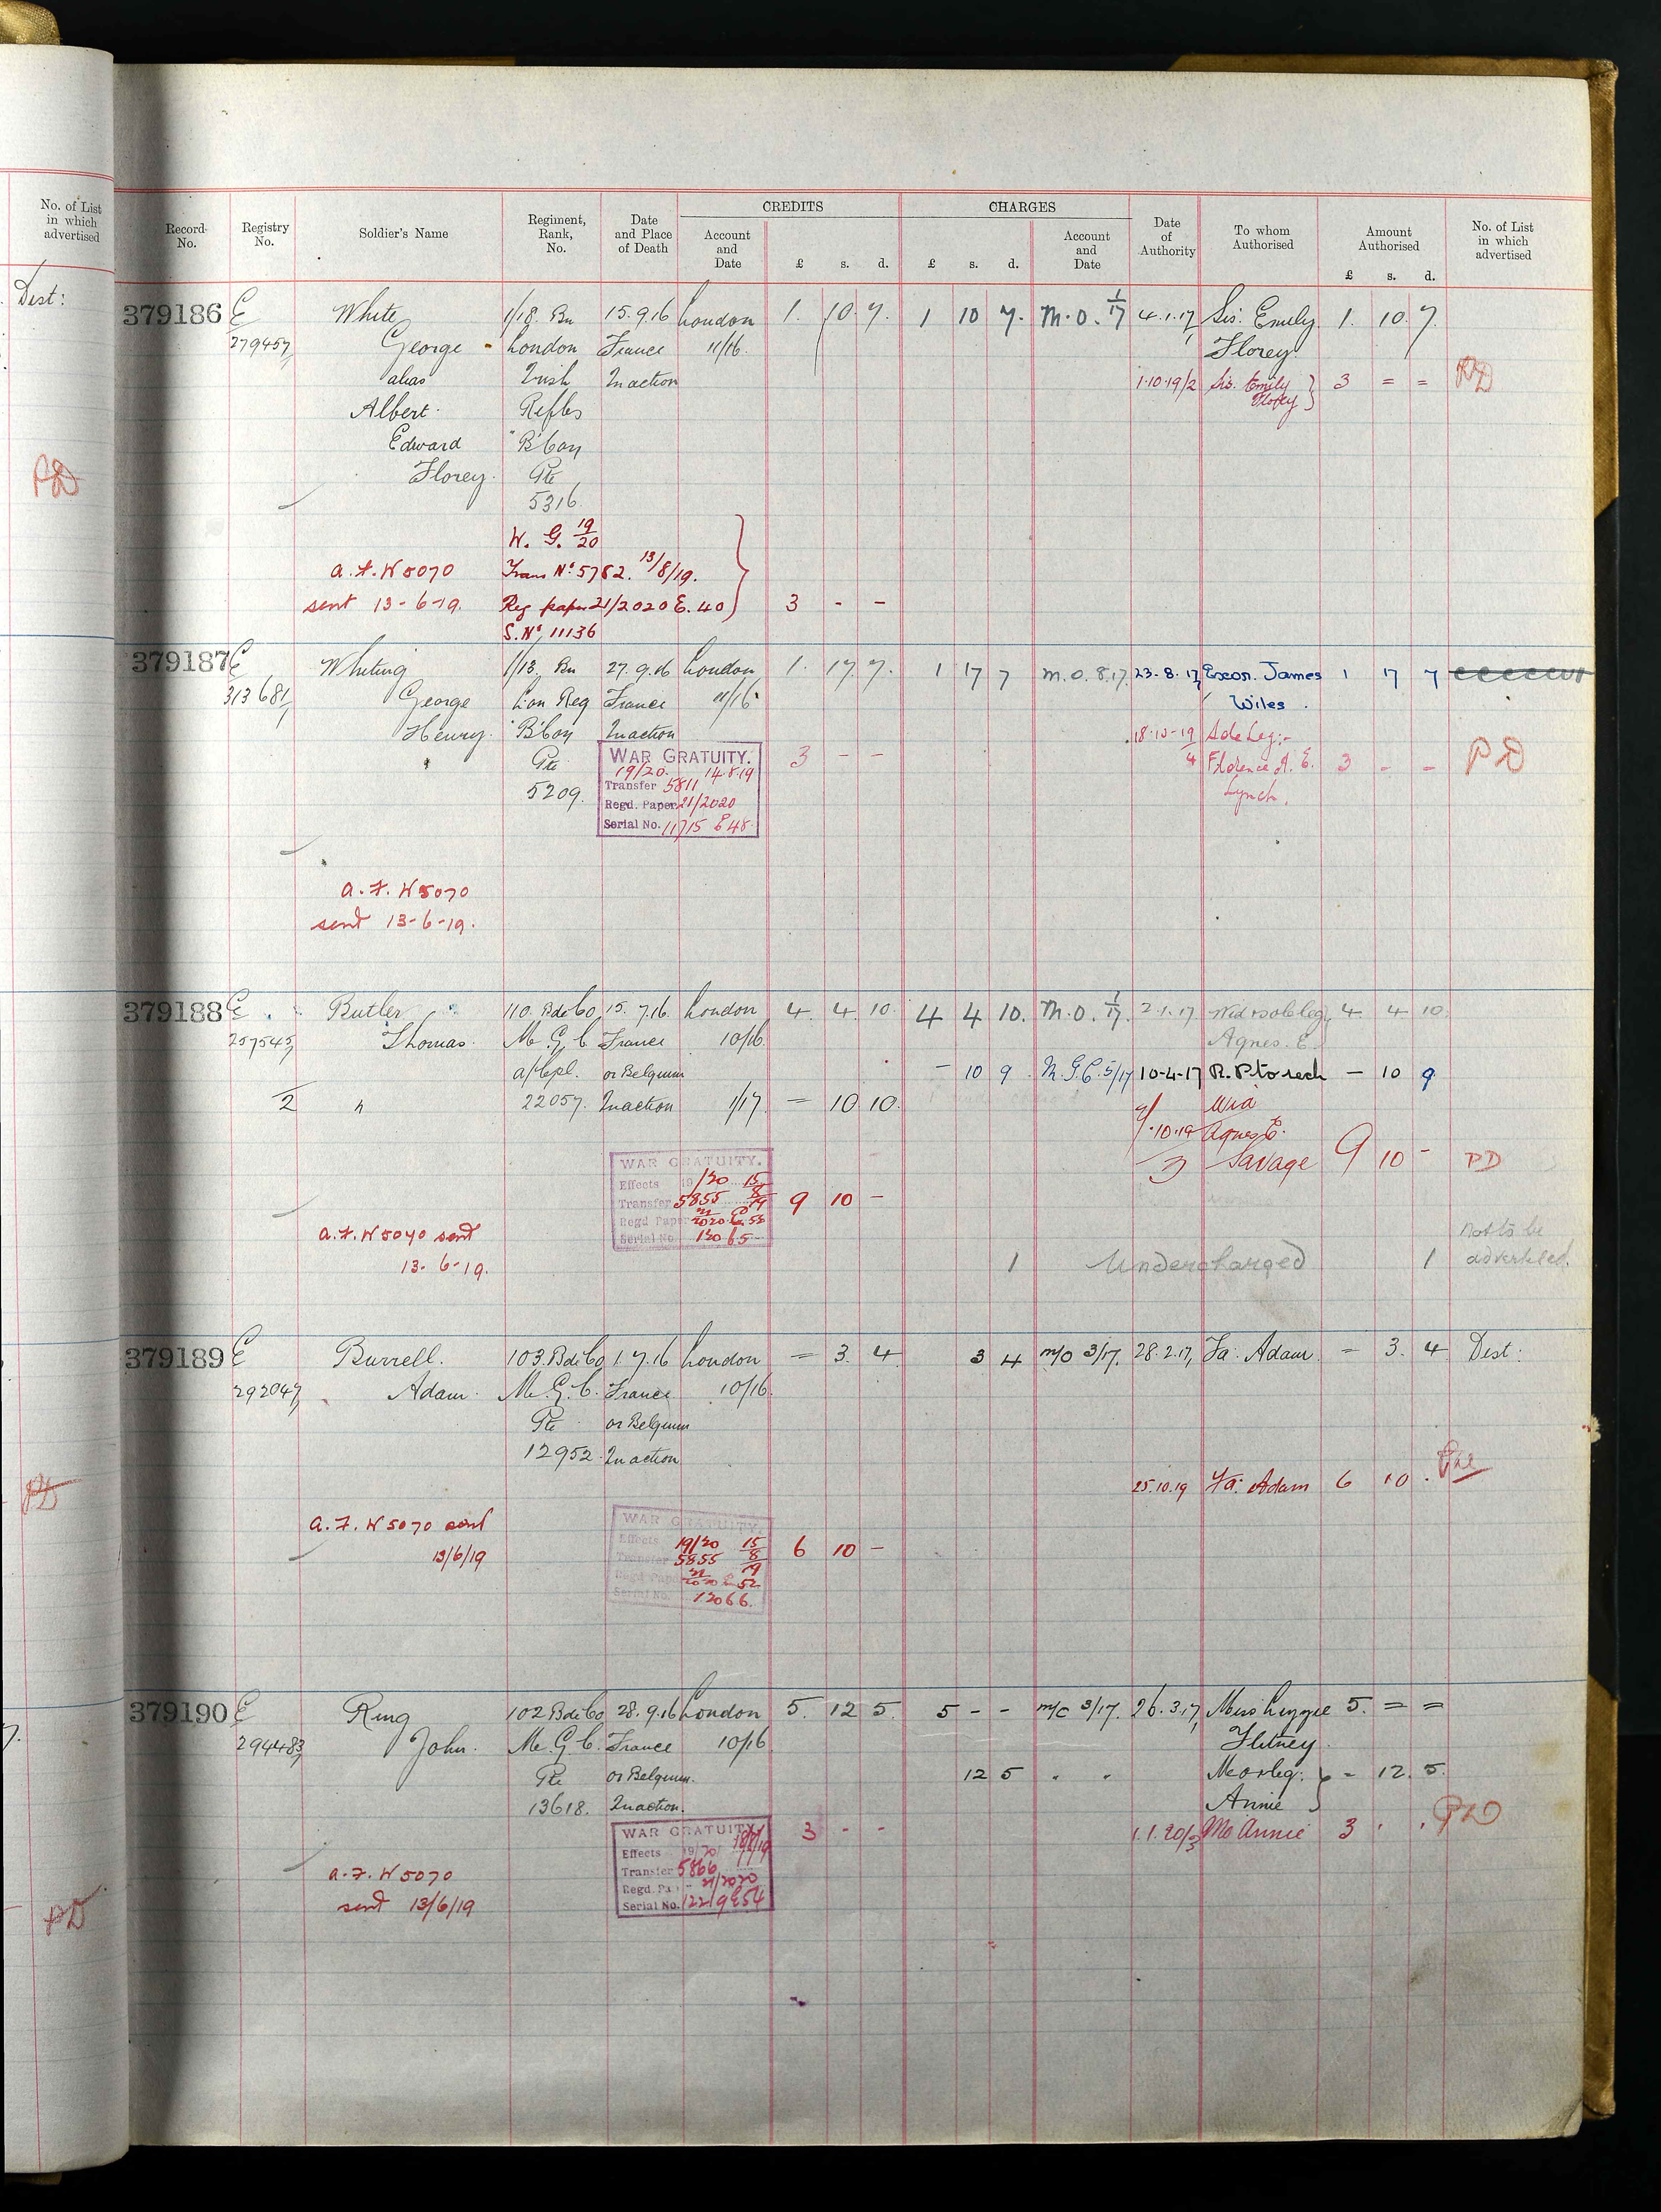 No. of List
in which
advertised
Dest:
PD
PD
PD
Record No.
Registry No.
Soldier's Name
Regiment, Rank, No.
Date and Place of Death
CREDITS
Account and Date
£ s. d.
CHARGES
£ s. d.
Account and Date
Date of Authority
To whom Authorised
Amount Authorised
£ s. d.
No. of List in which advertised
379186 E White 1/18. Bn 15.9.16 London 1. 10. 7. 1 10 7. M.O. 1/17 4.1.17 Sis: Emily 1. 10. 7.
279457 George London France 11/16. Florey
alias Irish In action 1.10.19/2 Sis. Emily Florey } 3 = = PD
Albert. Rifles
Edward "B" Coy
Florey. Pte
5316
W. G. 19/20
a.f.W5070 Trans No. 5782. 13/8/19.
sent 13-6-19. Reg paper 21/2020 E. 40 } 3 - -
S. No. 11136
379187 E Whiting 1/13. Bn 27.9.16 London 1. 17. 7. 1 17 7 M.O. 8.17. 23.8.17 Exor. James 1 17 7
313681 George Lon Reg France 11/16. Wiles.
Henry. "B" Coy In action 18.10.19/4 Sole Leg:-
Pte WAR GRATUITY. 3 - - Florence A. E. 3 - - PD
19/20. 14.8.19 Lynch.
5209. Transfer 5811
Regd. Paper 21/2020
Serial No. 11715 E48
a.f. W5070
sent 13-6-19.
379188 E Butler 110. Bde Co 15. 7.16. London 4. 4. 10. 4 4 10. M.O. 1/17. 2.1.17. Wid & sole leg. 4. 4 10.
257545 Thomas. M. G. C. France 10/16 Agnes. E.
a/Cpl. or Belgium - 10 9. M.G.C. 5/17 10-4-17 R.P to rech - 10 9.
2 " 22057. In action 1/17. = 10 10. Wid
Agnes E.
WAR GRATUITY. Savage 9 10 - PD
Effects 19/20 15/8/19
Transfer 5855 9 10 -
Regd Paper 21/2020 E.
a.f.W5070 sent Serial No. 12065 - Not to be
13-6-19. 1 Undercharged 1 advertised.
379189 E Burrell. 103. Bde Co 1. 7.16 London = 3. 4 3 4 M/O 3/17. 28.2.17, Fa: Adam. = 3. 4 Dest:
292047 Adam. M. G. C. France 10/16.
Pte or Belgium
12952. In action
25.10.19 Fa: Adam 6 10 .
a.f. W5070 sent WAR GRATUITY
13/6/19 Effects 19/20 15/8/19
Transfer 5855 6 10 -
Regd Paper 21/2020 E 52
Serial No. 12066.
379190 E Ring 102 Bde Co 28. 9.16 London 5. 12 5. 5 - - M/C 3/17. 26.3.17, Miss Lizzie 5. = =
294483 John. M. G. C. France 10/16
Pte or Belgium. 12 5 " " Mo & leg: } - 12. 5.
13618. In action. Annie
WAR GRATUITY 3 - - 1.1.20/3 Mo Annie 3 . . PD
Effects 19/20
Transfer 5866
a.f. W5070 Regd. Pa 21/2020
sent 13/6/19 Serial No. 12219 E54